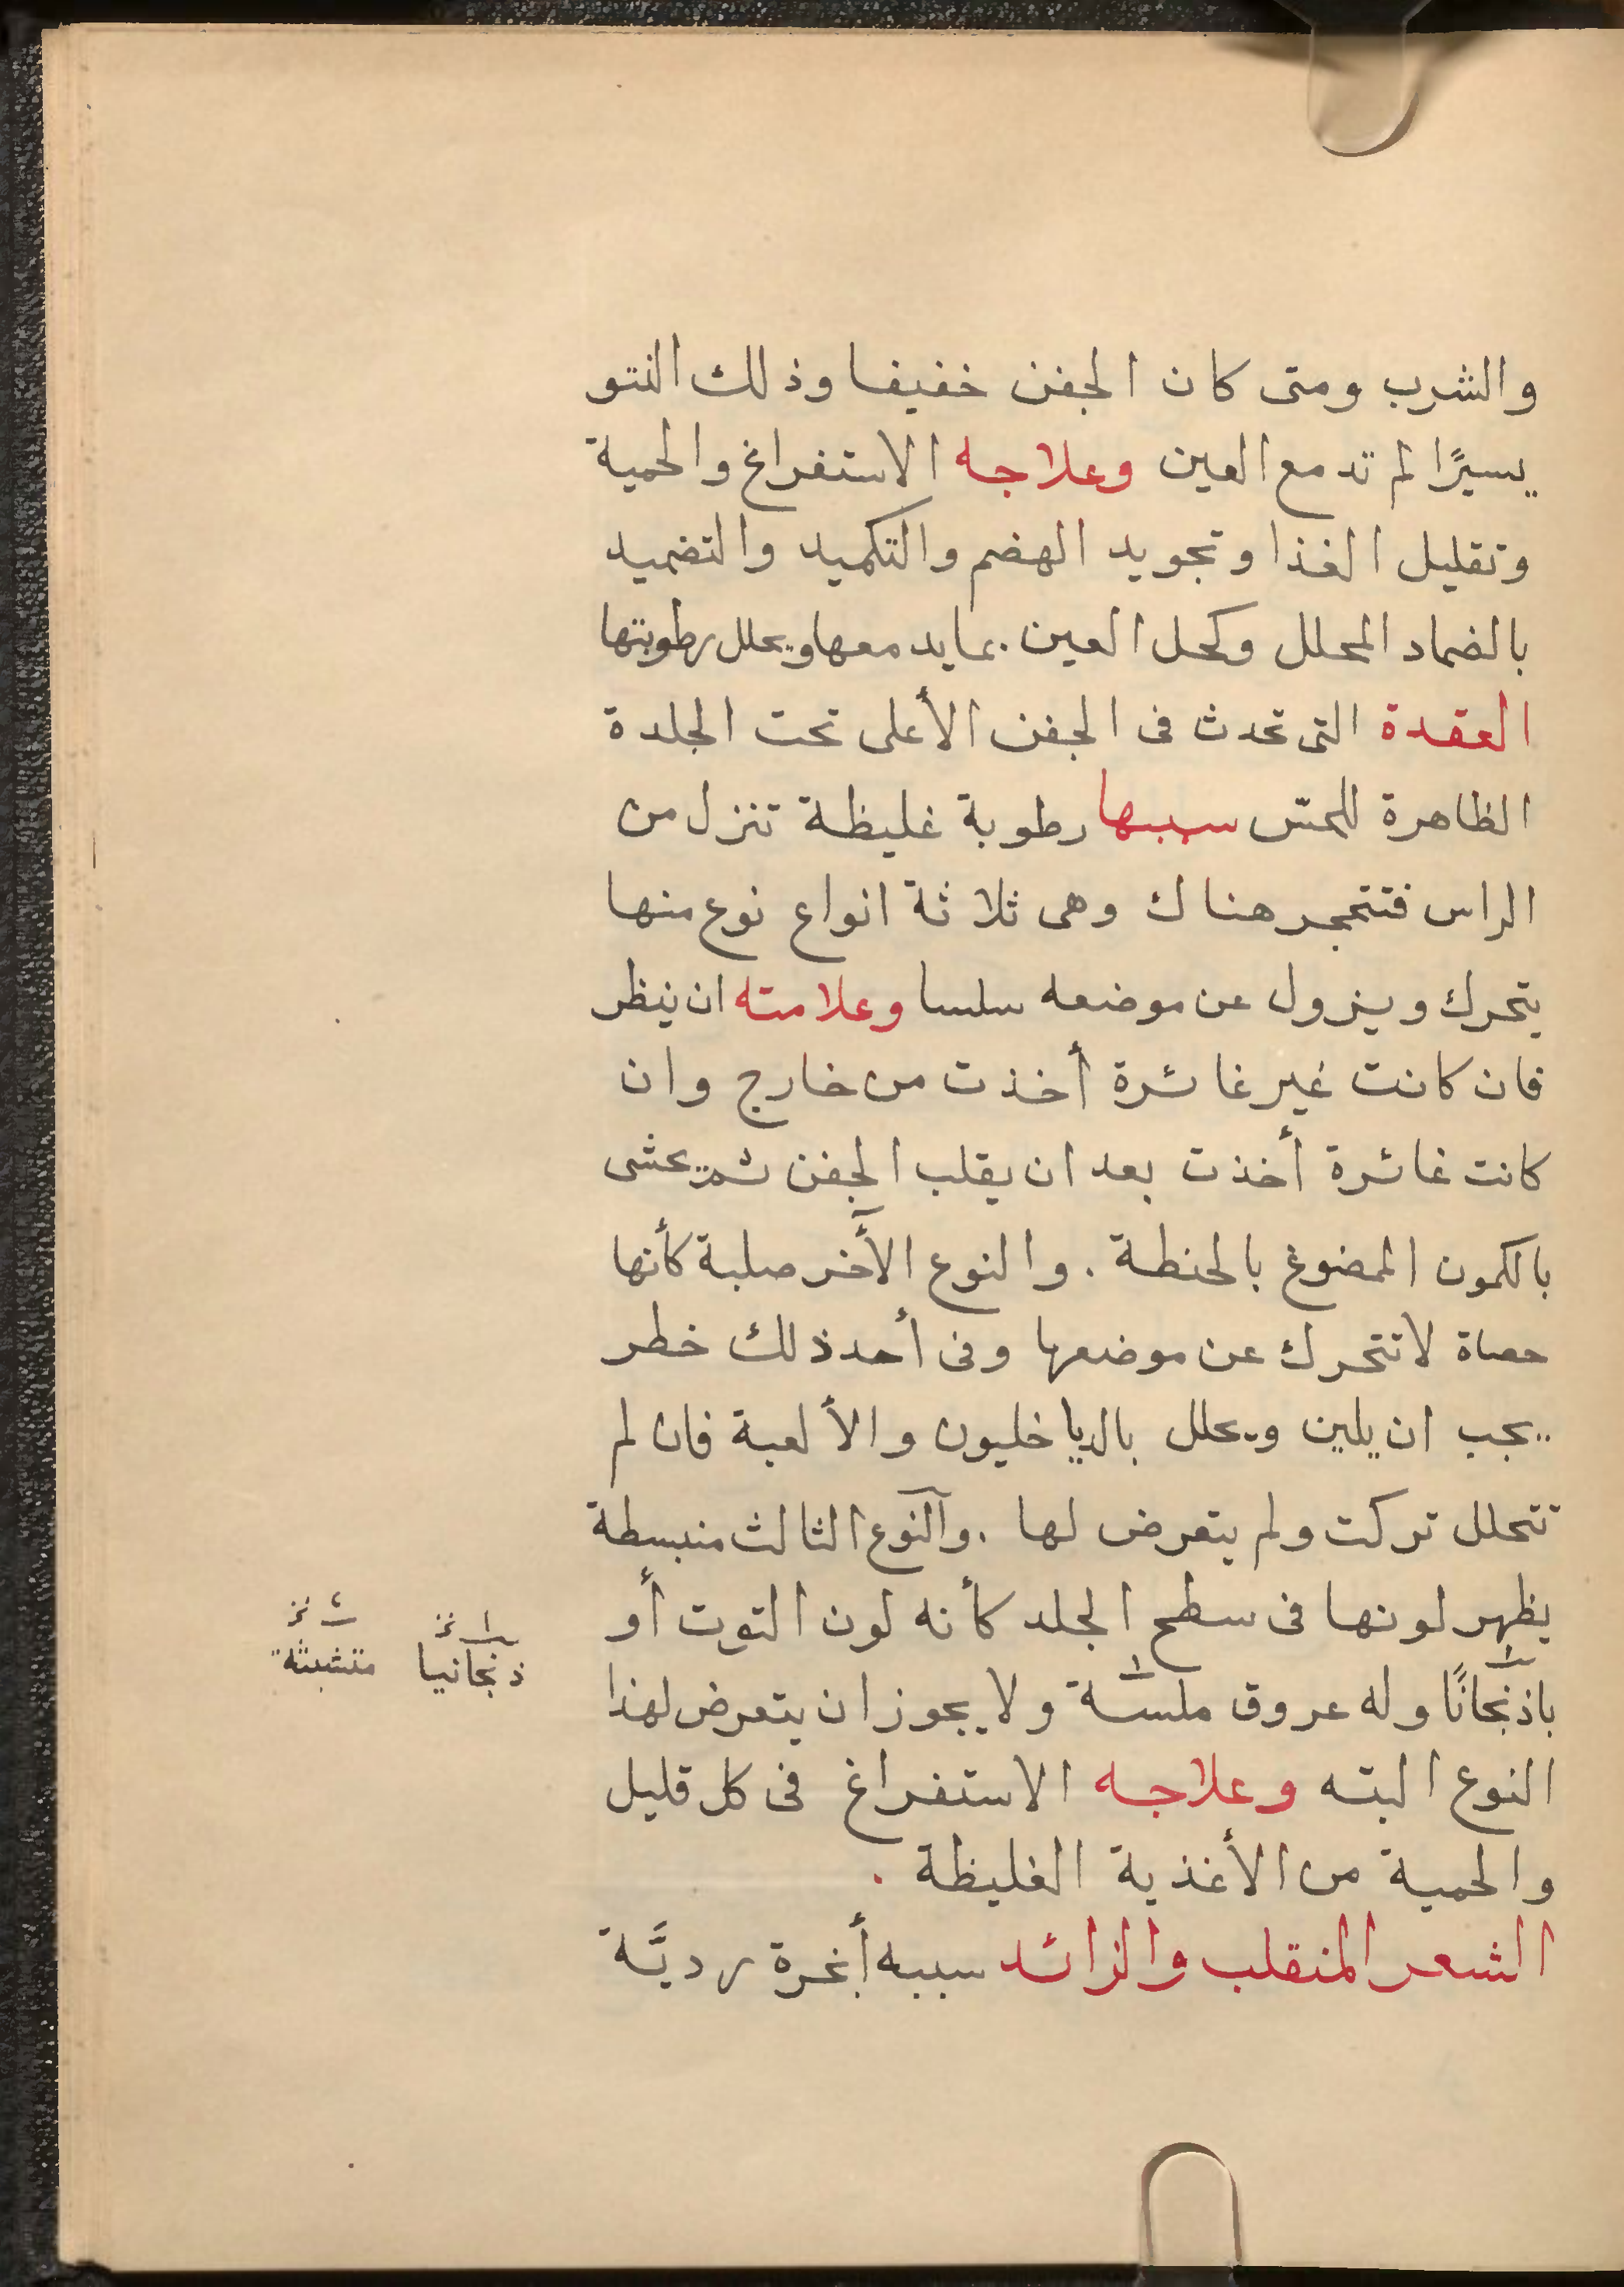 والشرب ومتى كان الجفن خفيفا وذلك النتو
يسيرًا لم تدمع العين وعلاجه الاستفراغ والحمية
وتقليل الغذا وتجويد الهضم والتكميد والتضميد
بالضماد المحلل وكحل العين بما يدمعها ويحلل رطوبتها
العقدة التى تحدث فى الجفن الأعلى تحت الجلدة
الظاهرة للحسّ سببها رطوبة غليظة تنزل من
الراس فتتحجر هناك وهى ثلاثة انواع نوع منها
يتحرك ويزول عن موضعه سلسا وعلامته ان ينظر
فان كانت غير غائرة أخذت من خارج وان
كانت غائرة أخذت بعد ان يقلب الجفن ثم يحشى
بالكمون الممضوغ بالحنطة . والنوع الآخر صلبة كأنها
حصاة لا تتحرك عن موضعها وفى أحد ذلك خطر
يجب ان يلين ويحلل بالدياخليون والألعبة فان لم
تتحلل تركت ولم يتعرض لها . والنوع الثالث منبسطة
يظهر لونها فى سطح الجلد كأنه لون التوت أو
باذنجانًا وله عروق ولا يجوز ان يتعرض لهذا
النوع البته وعلاجه الاستفراغ فى كل قليل
والحمية من الأغذية الغليظة .
الشعر المنقلب والزائد سببه أبخرة رديَّة
ذنجانيا
متشبثة